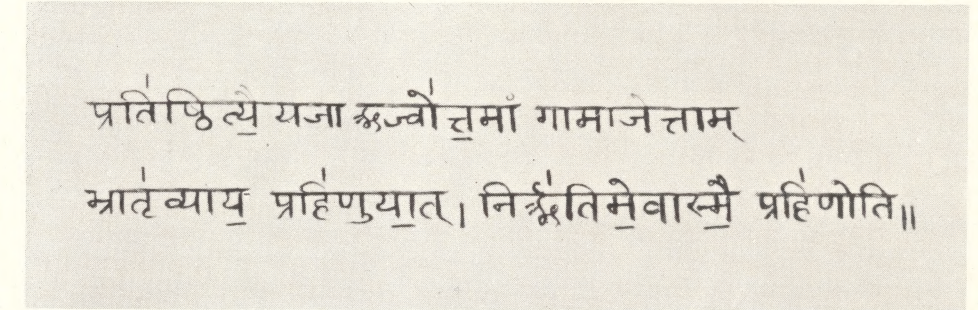 प्रति॑ष्ठित्यै॒ यजा ऋज्वो॑त्त॒मां गामाजेत्ताम्
भ्रातृ॑व्याय॒ प्रहि॑णुया॒त्। निरृ॑तिमे॒वास्मै॒ प्रहि॑णोति॥